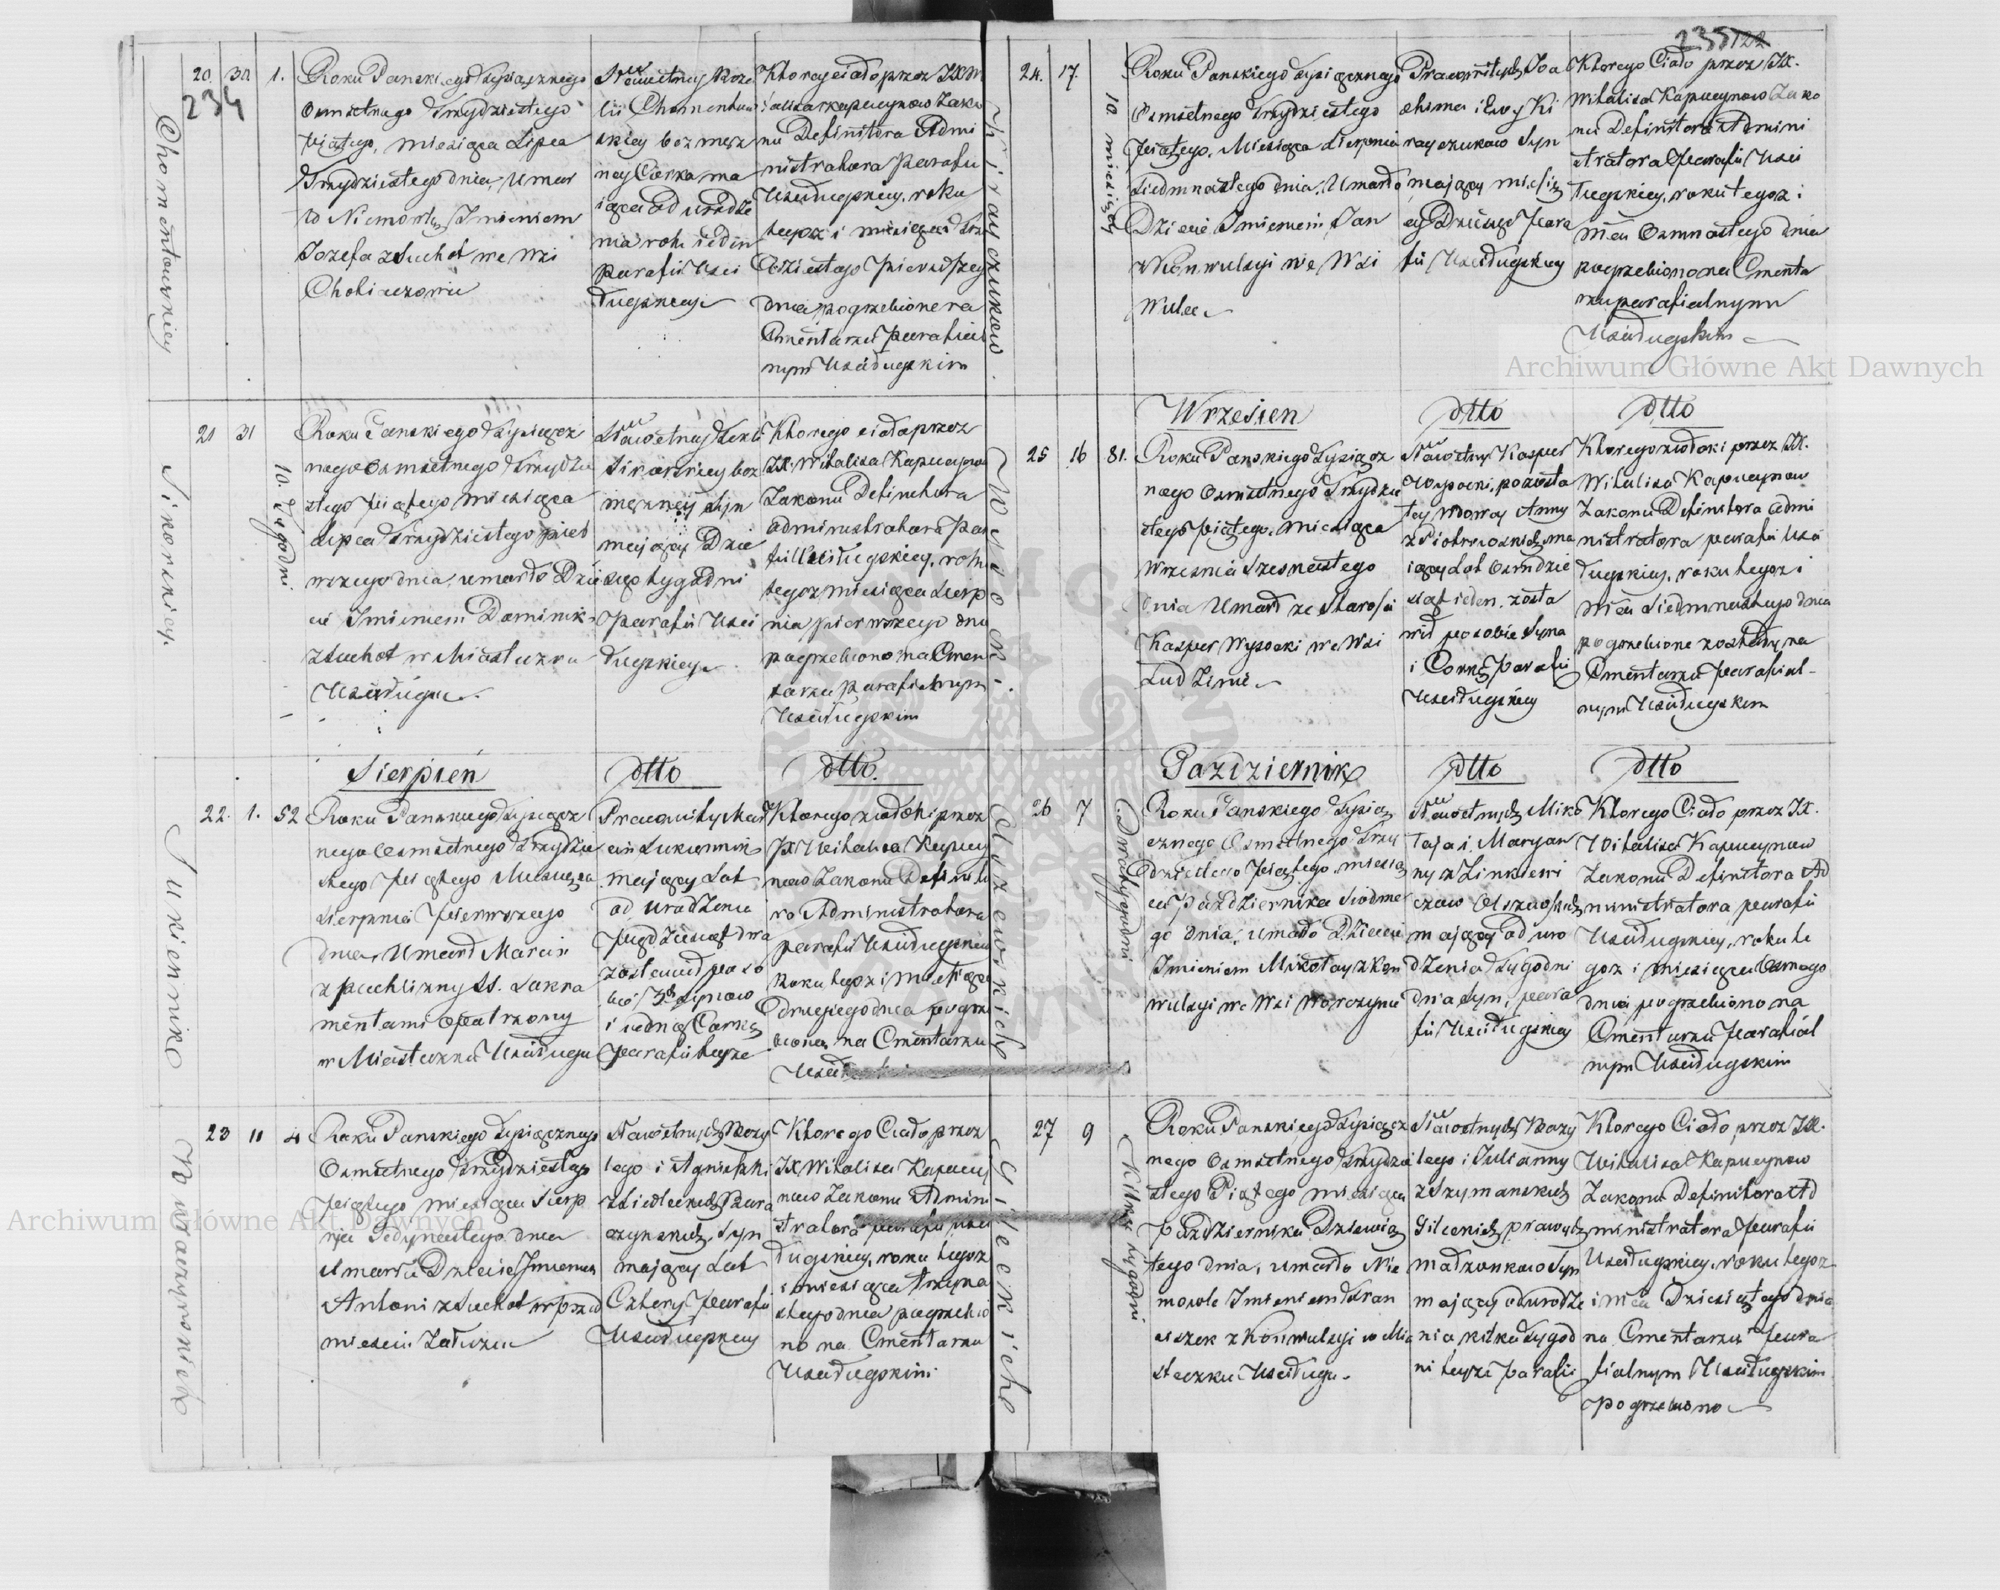 234
Chomentowskiey
20. 30. 1.
Roku Panskiego Tysiącznego
Osmsetnego Trzydziestego
Piątego, miesiąca Lipca
Trzydziestego dnia, Umar
ło Niemowlę Imieniem
Jozefa z Suchot we wsi
Chobiczowie
Sławetney Roza
lii Chomentow
skiey bezmęż
ney Corka ma
iąca od urodze
nia rok ieden
parafii Usci
ługskiey
Ktorey ciało przez JX
Kapucynow Zako
nu Definitora Admi
nistratora Parafii
Usciługskiey, roku
tegoż i miesiąca Trzy
dziestego pierwszego
dnia pogrzebione na
Cmentarzu Parafial
nym Usciługskim
Sikorskiey.
21 31
10. Tygodni
Roku Panskiego Tysiącz
nego Osmsetnego Trzydzie
stego piątego miesiąca
Lipca Trzydziestego pierw
wszego dnia, umarło Dzie
cie Imieniem Dominik
z Suchot w Miasteczku
Usciługu
Sławetney Tekli
Sikorskiey bez
mężney syn
maiący Dzie
sięc tygodni
Parafii Usci
ługskiey
Ktorego ciało przez
JX. Witalisa Kapucynow
Zakonu Definitora
administratora Para
fii Usciługskiey, roku
tegoż miesiąca Sierp
nia pierwszego dnia
pogrzebiono na Cmen
tarzu parafialnym
Usciługskim
Sierpień dtto dtto.
Sukiennik
22. 1. 52
Roku Panskiego Tysiącz
nego Osmsetnego Trzydzie
stego Piątego Miesiąca
Sierpnia Pierwszego
dnia, Umarł Marcin
z puchlizny SS. Sakra
mentami opatrzony
w Miasteczku Usciługu
Pracowity Mar
cin Sukiennik
maiący Lat
od urodzenia
Pięcdziesiąt dwa
zostawił po so
bie synow
i iedną Corkę
Parafii teyże
Ktorego zwłoki przez
JX Witalisa Kapucy
now Zakonu Definito
ra Administratora
parafii Usciługskiey
Roku tegoż i miesiąca
drugiego dnia pogrze
biono na Cmentarzu
23 11 4
Roku Panskiego Tysiącznego
Osmsetnego Trzydziestego
Piątego miesiąca Sierp
nia Jedynastego dnia
Umarło Dziecie Imieniem
Antoni z Suchot w przed
miesciu Załużu
Sławetnych Bazy
lego i Agnieszki
z Siedleckich
czynskich, Syn
maiący Lat
Cztery Parafii
Usciługskiey
Ktorego Ciało przez
JX Witalisa Kapucy
now Zakonu Admini
stratora parafii Usci
ługskiey, roku tegoż
i miesiąca trzyna
stego dnia pogrzebio
no na Cmentarzu
Usciługskim
235
122
Kirayczukow.
24. 17.
10 miesięcy
Roku Panskiego Tysiącznego
Osmsetnego Trzydziestego
Piątego, Miesiąca Sierpnia
Siedmnastego dnia, Umarło
Dziecie Imieniem Jan
z Konwulsyi we Wsi
Wulce
Pracowitych Joa
chima i Ewy Ki
rayczukow Syn
maiący miesię
cy Dziesięc Para
fii Usciługskiey
Ktorego Ciało przez JX.
Witalisa Kapucynow Zako
nu Definitora Admini
stratora Parafii Usci
ługskiey, roku tegoż i
mca Osmnastego dnia
pogrzebiono na Cmenta
rzu parafialnym
Usciługskim
Wrzesien dtto dtto
Wysocki.
25 16 81.
Roku Panskiego Tysiącz
nego Osmsetnego Trzydzie
stego Piątego, miesiąca
Wrzesnia Szesnastego
dnia Umarł ze starosci
Kasper Wysocki we Wsi
Ludzinie
Sławetny Kasper
Wysocki, pozosta
łey wdowy Anny
z Piotrowskich, ma
iący Lat Osmdzie
siąt ieden, zosta
wił po sobie Syna
i Corkę Parafii
Usciługskiey
Ktorego zwłoki przez JX.
Witalisa Kapucynow
Zakonu Definitora admi
nistratora parafii Usci
ługskiey, roku tegoż i
mca Siedmnastego dnia
pogrzebione zostały na
Cmentarzu Parafial-
nym Usciługskim
Pazdziernik dtto dtto
Olszewskich
26 7
Roku Panskiego Tysią
cznego Osmsetnego Trzy
dziestego Piątego, miesią
ca Pazdziernika Siodme
go dnia, umarło Dziecie
Imieniem Mikołay z Kon
wulsyi we Wsi Worczynie
Sławetnych Miko
łaja i Maryan
ny z Zinkiewi
czow Olszewskich
maiący od uro
dzenia Tygodni
dwa syn, para
fii Usciługskiey
Ktorego Ciało przez JX.
Witalisa Kapucynow
Zakonu Definitora Ad
ministratora parafii
Usciługskiey, roku te
goż i miesiąca Osmego
dnia pogrzebiono na
Cmentarzu Parafial
nym Usciługskim
Gileckich
27 9
Kilka tygodni
Roku Panskiego Tysiącz
nego Osmsetnego Trzydzie
stego Piątego miesiąca
Pazdziernika Dziewią
tego dnia, umarło Nie
mowle Imieniem Fran
ciszek z Konwulsyi w Mia
steczku Usciługu.
Sławetnych Bazy
lego i Julianny
z Szymanskich
Gileckich prawych
małzonkow Syn
maiący od urodze
nia kilka Tygod
ni teyże parafii
Ktorego Ciało przez JX.
Witalisa Kapucynow
Zakonu Definitora Ad
ministratora Parafii
Usciługskiey, roku tegoż
i mca Dziesiątego dnia
na Cmentarzu Para
fialnym Usciługskim
pogrzebiono
Archiwum Główne Akt Dawnych
Archiwum Główne Akt Dawnych